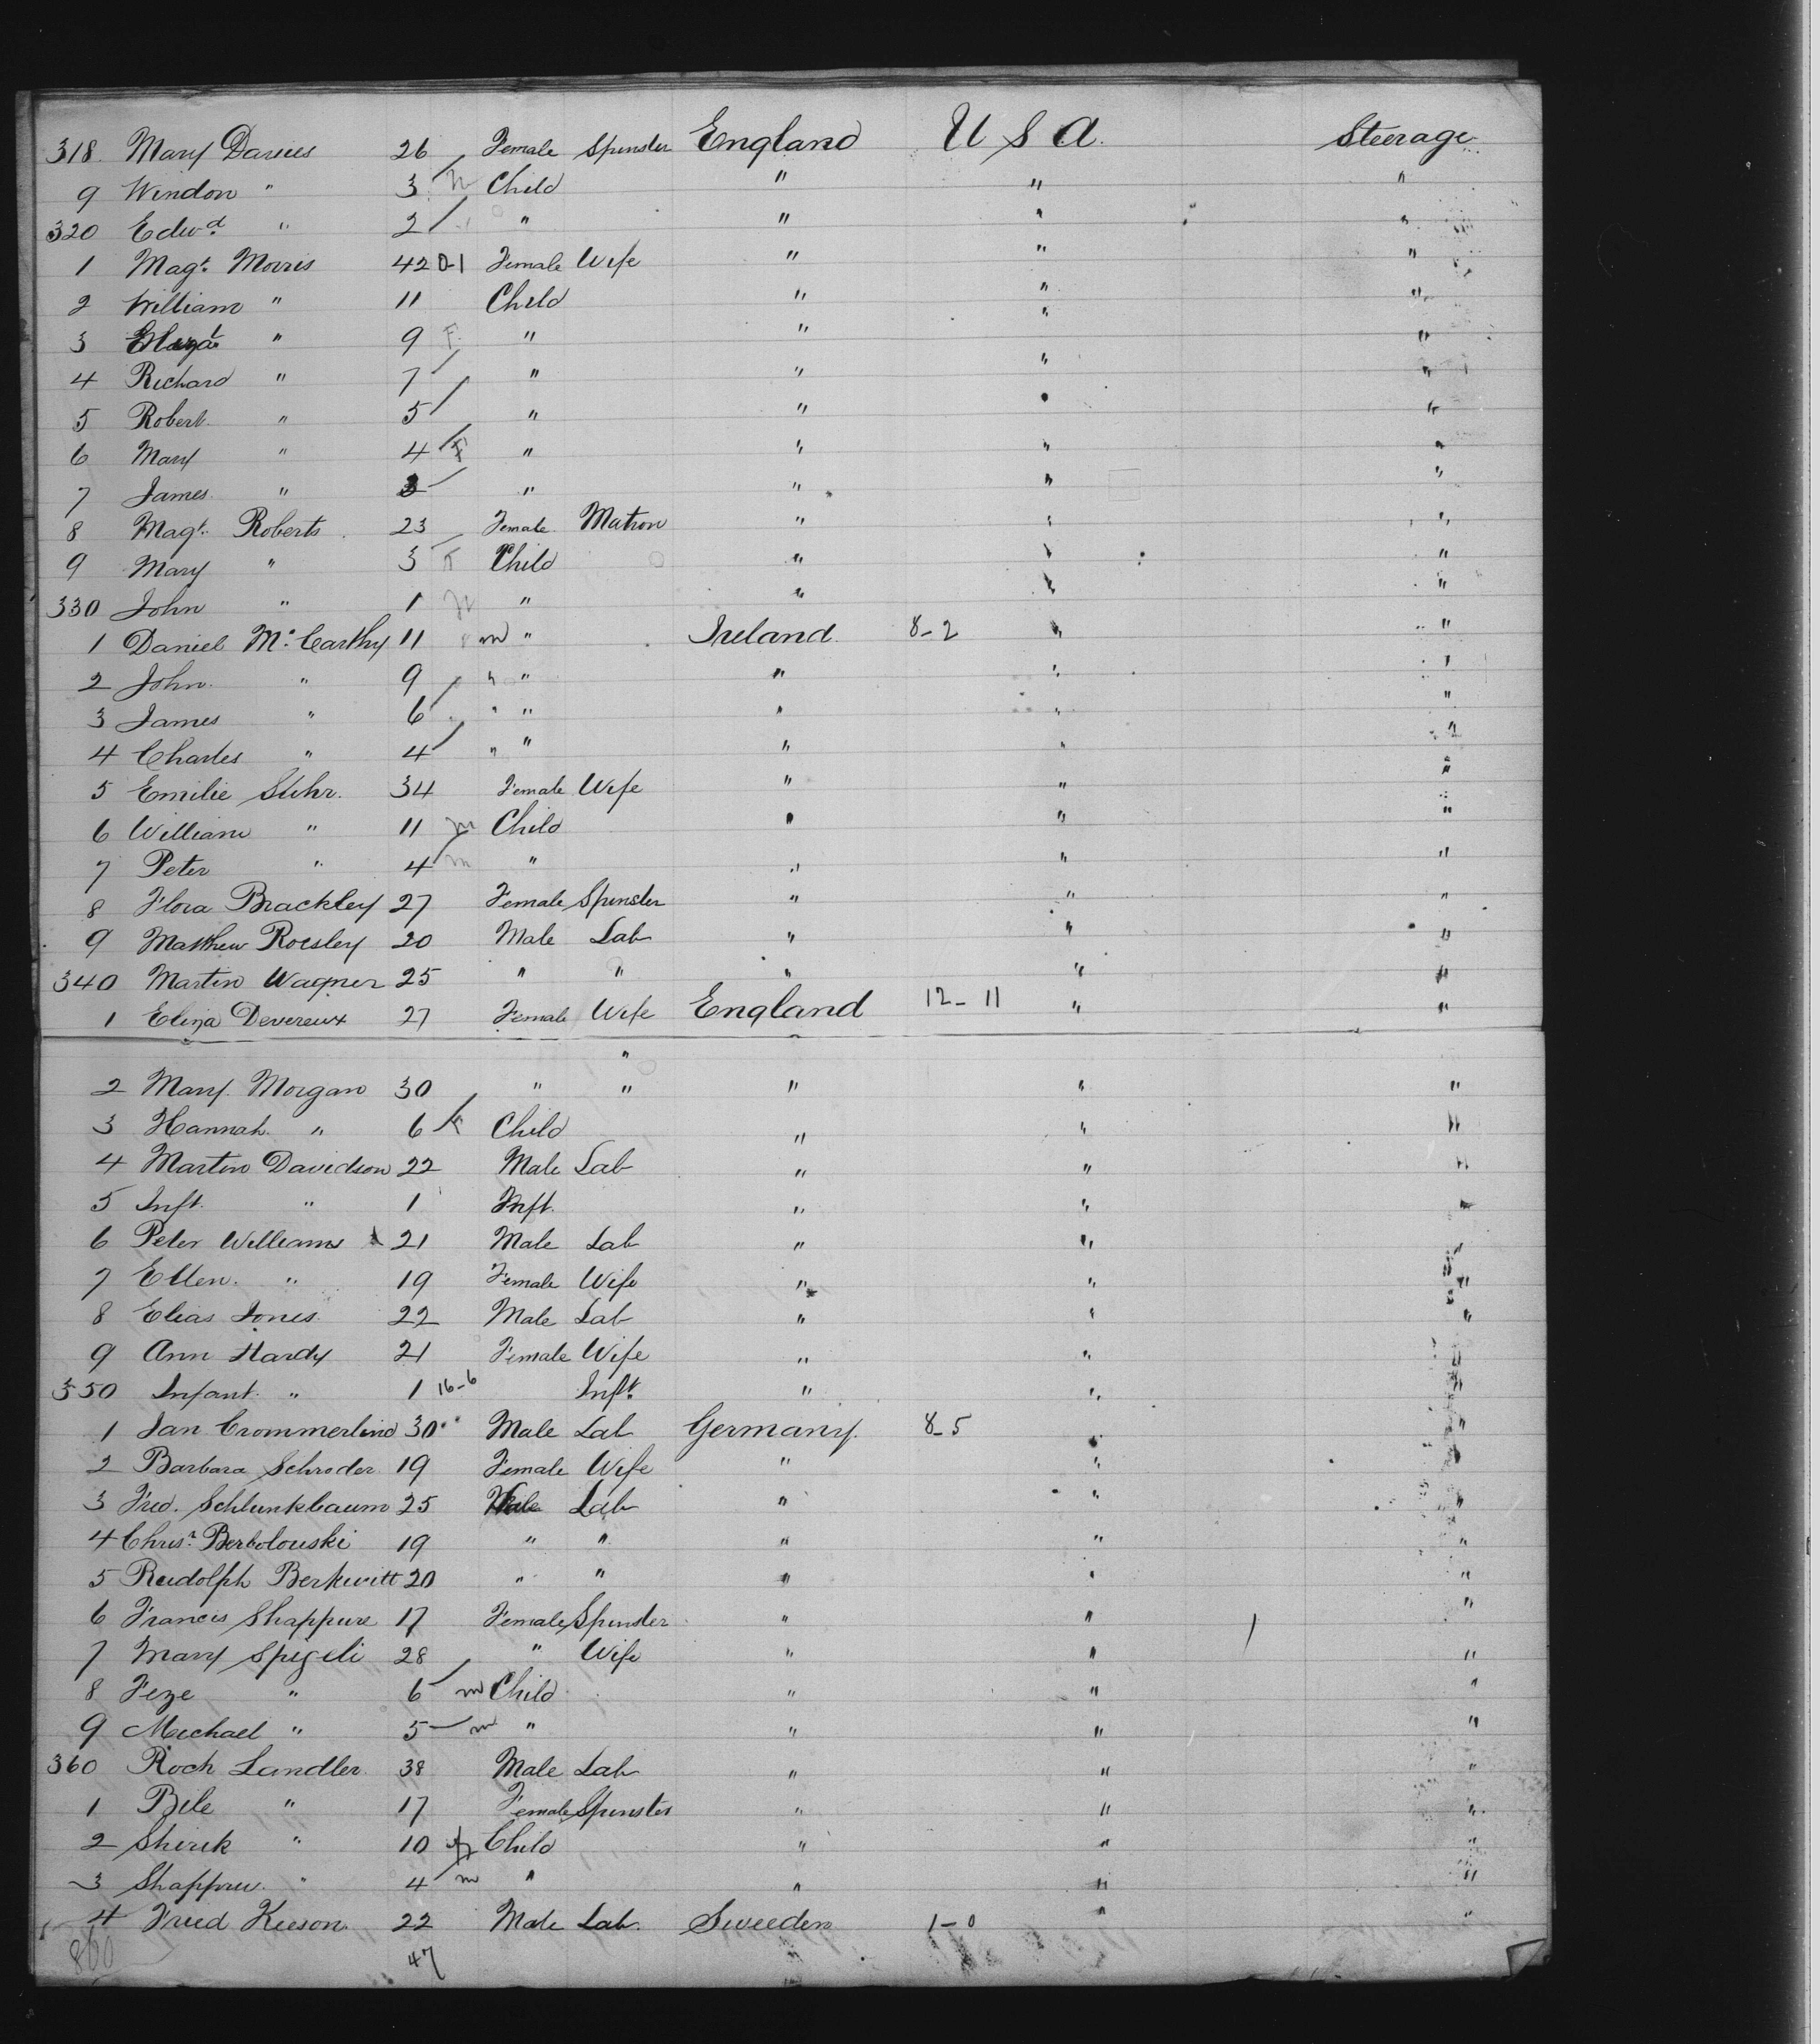 318. Mary Davies 26 Female Spinster England U S A. Steerage
9 Windon " 3 Child " " "
320 Edwd " 2 " " " "
1 Magt. Morris 42 0-1 Female Wife " " "
2 William " 11 Child " " "
3 " 9 F " " " "
4 Richard " 7 " " " "
5 Robert " 5 " " " "
6 Mary " 4 F " " " "
7 James " 3 " " " "
8 Magt. Roberts 23 Female Matron " " "
9 Mary " 3 F Child " " "
330 John " 1 " " " "
1 Daniel Mc Carthy 11 m " Ireland 8-2 " "
2 John " 9 " " " " "
3 James " 6 " " " " "
4 Charles " 4 " " " " "
5 Emilie Stihr. 34 Female Wife " " "
6 William " 11 m Child " " "
7 Peter " 4 m " " " "
8 Flora Brackley 27 Female Spinster " " "
9 Matthew Roesley 20 Male Lab " " "
340 Martin Wagner 25 " " " " "
1 Eliza Devereux 27 Female Wife England 12-11 " "
"
2 Mary Morgan 30 " " " " "
3 Hannah " 6 F Child " " "
4 Martin Davidson 22 Male Lab " " "
5 Inft. " 1 Inft. " " "
6 Peter Williams 21 Male Lab " " "
7 Ellen " 19 Female Wife " " "
8 Elias Jones 22 Male Lab " " "
9 Ann Hardy 21 Female Wife " " "
350 Infant " 1 16-6 Inft. " " "
1 Jan Crommerlind 30 Male Lab Germany 8-5 " "
2 Barbara Schroder 19 Female Wife " " "
3 Fred. Schlunkbaum 25 Male Lab " " "
4 Chrisr. Berbolouski 19 " " " " "
5 Rudolph Berkwitt 20 " " " " "
6 Francis Shappure 17 Female Spinster " " "
7 Mary Spigeli 28 " Wife " " "
8 Feze " 6 m Child " " "
9 Michael " 5 m " " " "
360 Roch Landler 38 Male Lab " " "
1 Bile " 17 Female Spinster " " "
2 Shirik " 10 Child " " "
3 " 4 m " " " "
4 Fried Keeson 22 Male Lab. Sweeden 1-0 " "
860 47